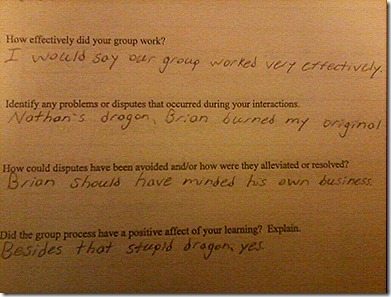 How effectively did your group work?
I would say our group worked very effectively.
Identify any problems or disputes that occurred during your interactions.
Nathan's dragon, Brian burned my original
How could disputes have been avoided and/or how were they alleviated or resolved?
Brian should have minded his own business.
Did the group process have a positive affect of your learning? Explain.
Besides that stupid dragon, yes.